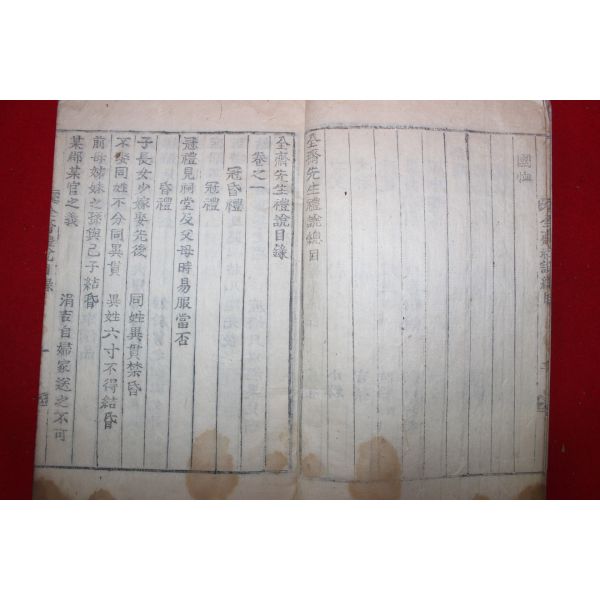 國恤
全齋先生禮說總目
全齋先生禮說目錄
卷之一
冠昏禮
冠禮
冠禮見祠堂及父母時易服當否
昏禮
子長女少嫁娶先後 同姓異貫禁昏
不娶同姓不分同異貫 異姓六寸不得結昏
前母姊妹之孫與己子結昏
某鄉某官之義 涓吉自婦家送之不可